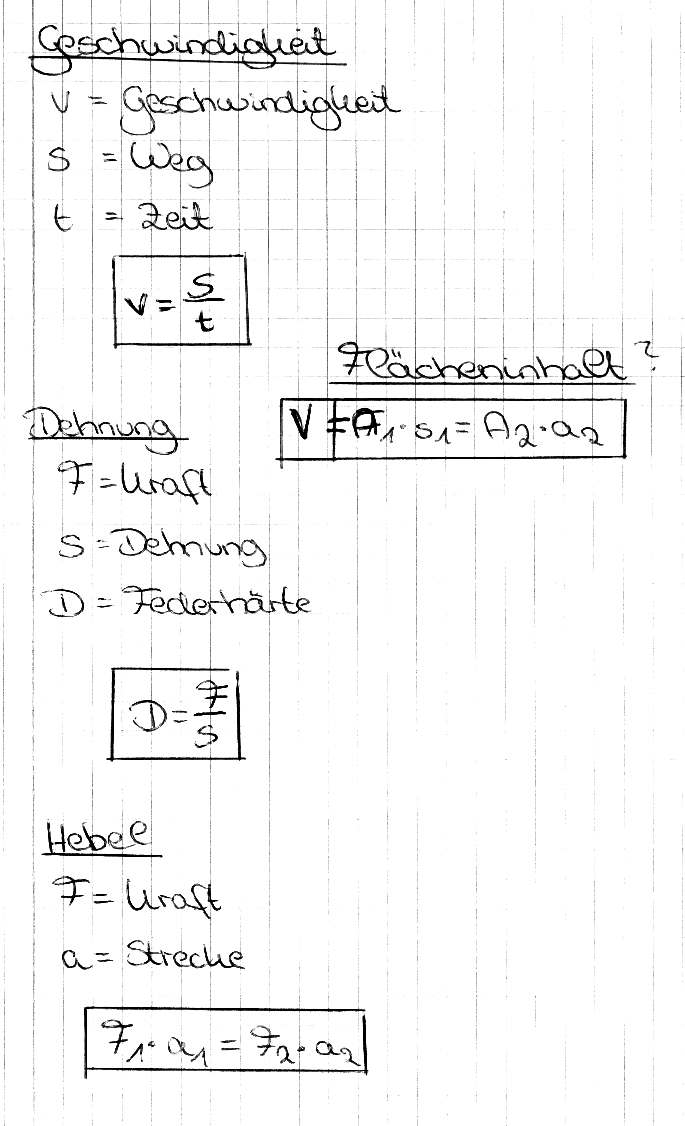 Geschwindigkeit
v = Geschwindigkeit
s = Weg
t = Zeit
v = s/t
Flächeninhalt?
V = A₁·s₁ = A₂·a₂
Dehnung
F = Kraft
s = Dehnung
D = Federhärte
D = F/s
Hebel
F = Kraft
a = Strecke
F₁·a₁ = F₂·a₂